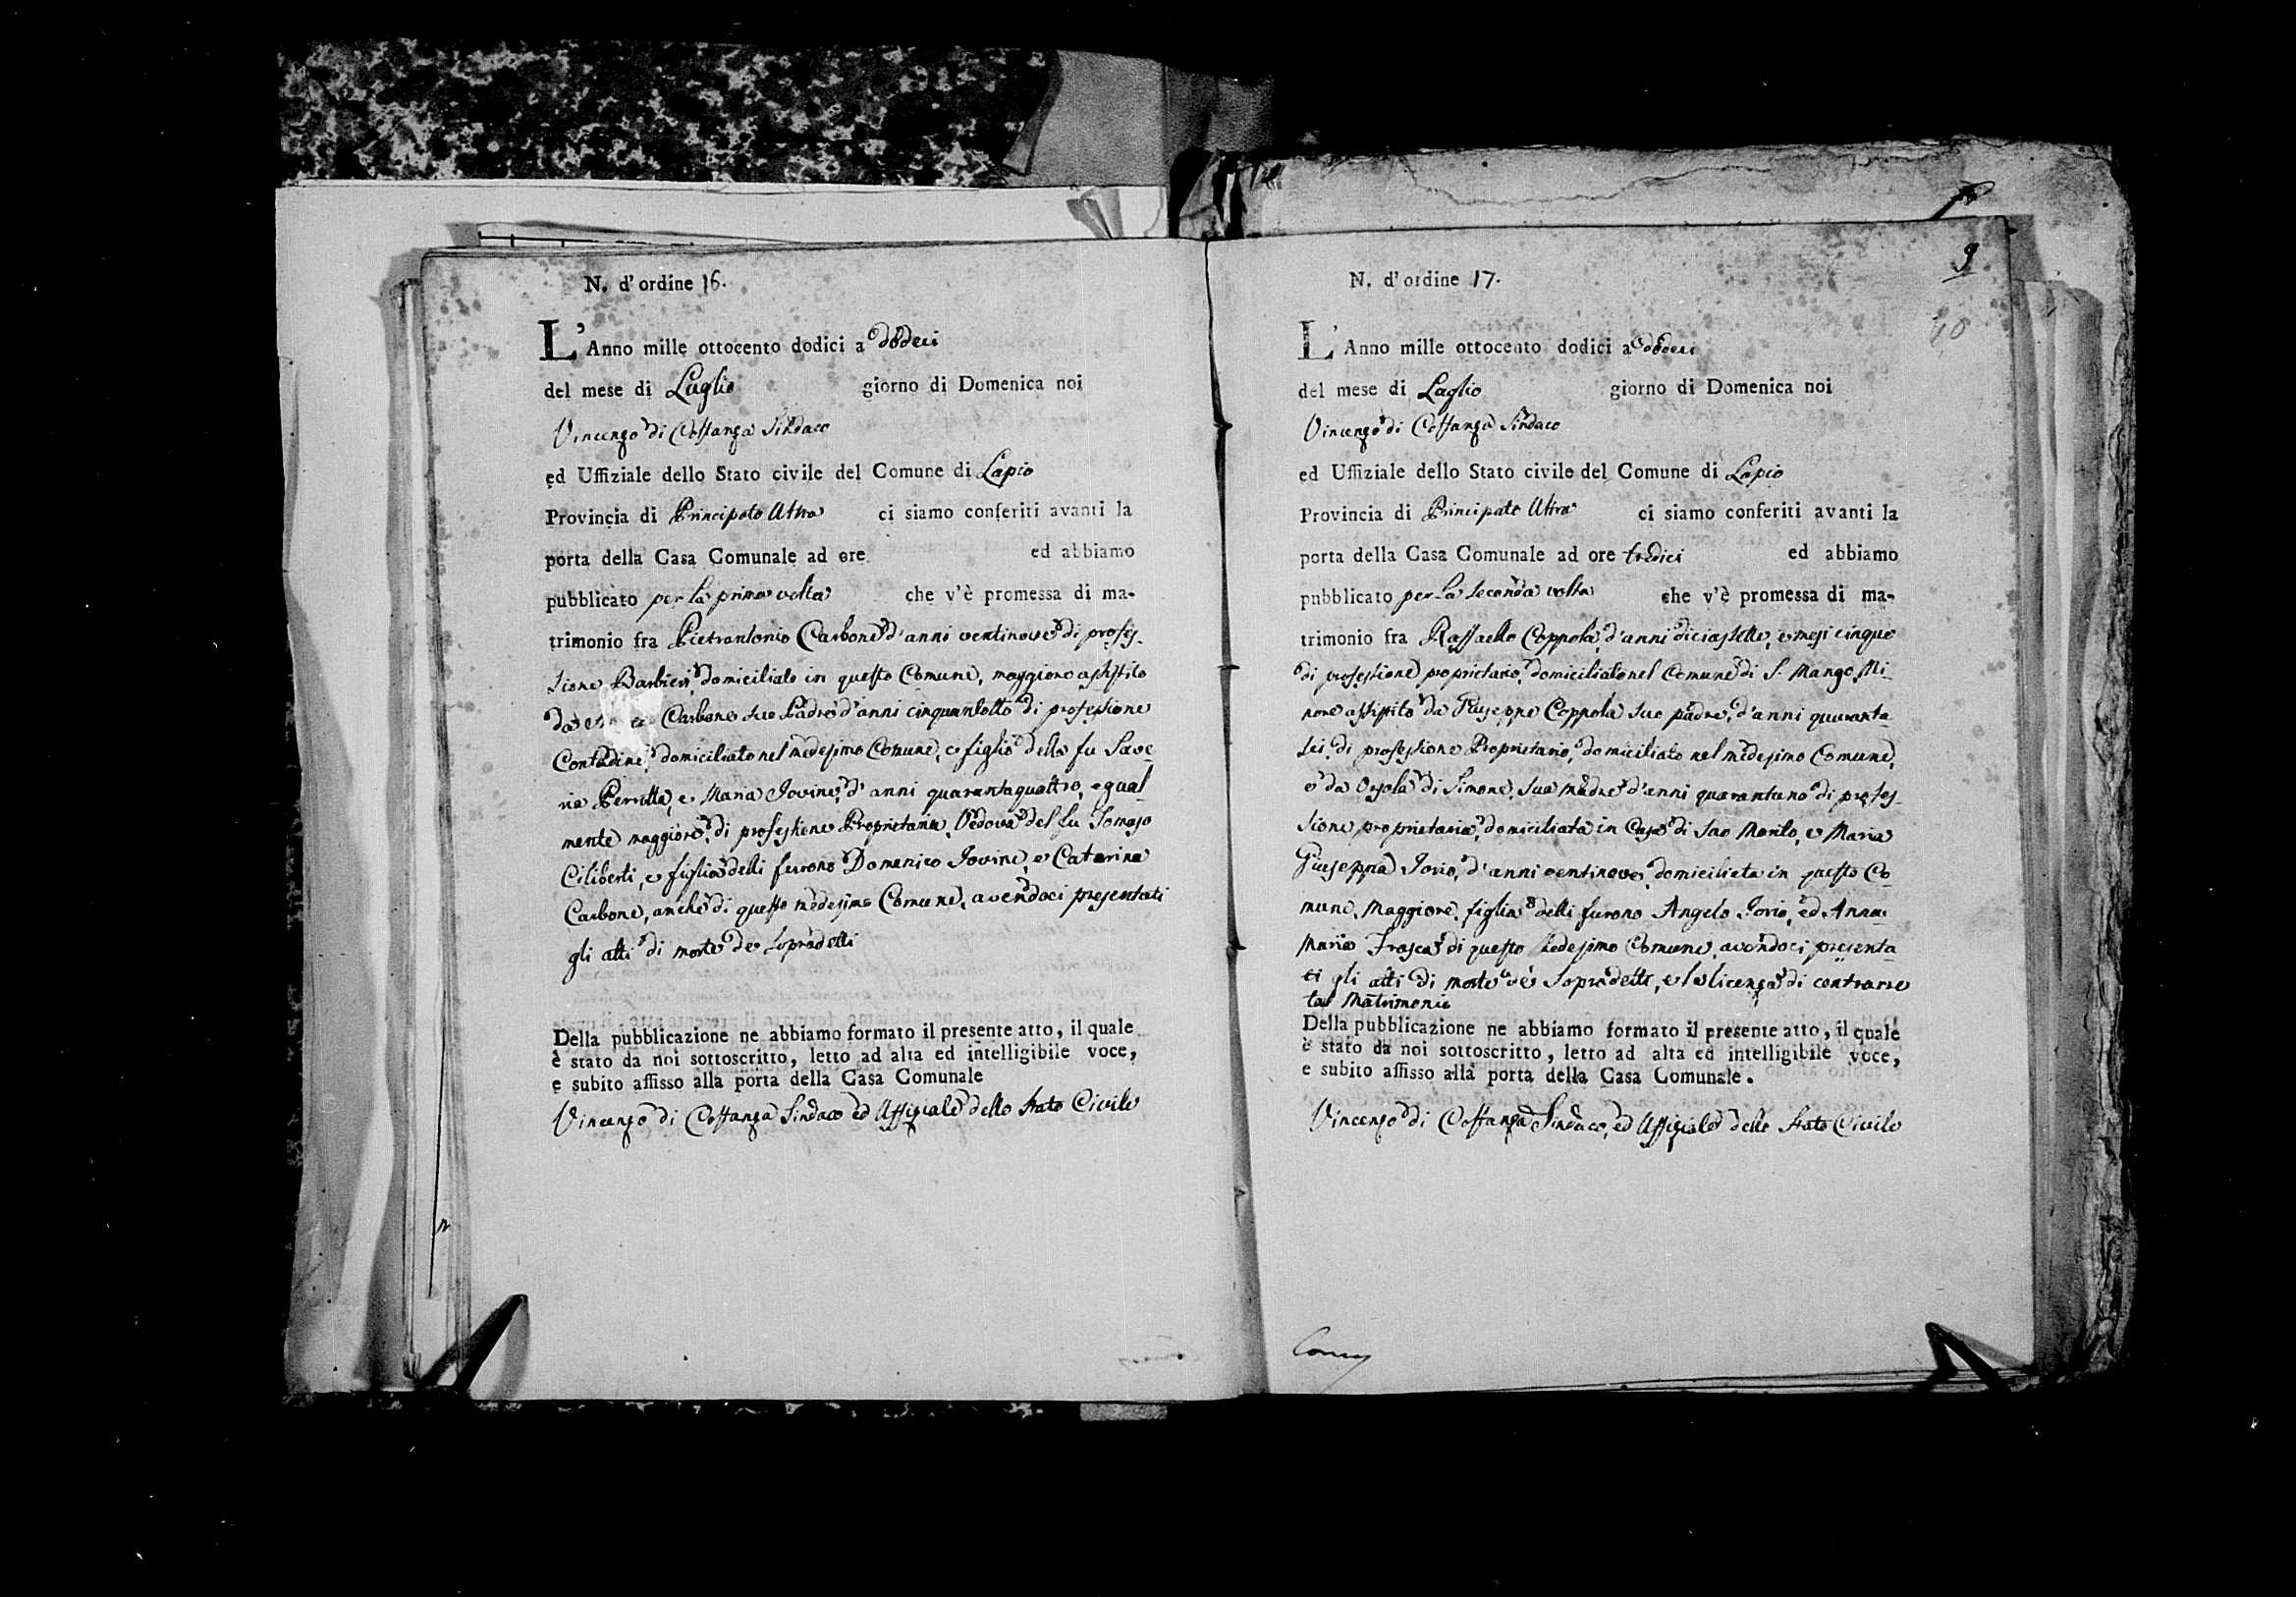 N. d'ordine 16.
L'Anno mille ottocento dodici a dodeci
del mese di Luglio giorno di Domenica noi
Vincenzo di Costanza Sindaco
ed Uffiziale dello Stato civile del Comune di Lapio
Provincia di Principato Ultra ci siamo conferiti avanti la
porta della Casa Comunale ad ore ed abbiamo
pubblicato per la prima volta che v'è promessa di ma-
trimonio fra Pietrantonio Carbone d'anni ventinove di profes-
sione Barbieri, domiciliato in questo Comune, maggiore assistito
da Carbone suo Padre d'anni cinquantotto di professione
Contadine, domiciliato nel medesimo Comune, e figlio della fu Save-
ria Perrotta, e Maria Iovine, d'anni quarantaquattro, egual-
mente maggiore, di professione Proprietaria, Vedova del fu Tomaso
Ciliberti, e figlia delli furono Domenico Iovine, e Catarina
Carbone, anche di questo medesimo Comune, avendoci presentati
gli atti di morte de sopradetti
Della pubblicazione ne abbiamo formato il presente atto, il quale
è stato da noi sottoscritto, letto ad alta ed intelligibile voce,
e subito affisso alla porta della Casa Comunale
Vincenzo di Costanza Sindaco ed Uffiziale dello Stato Civile
9
10
N. d'ordine 17.
L'Anno mille ottocento dodici a dodeci
del mese di Luglio giorno di Domenica noi
Vincenzo di Costanza Sindaco
ed Uffiziale dello Stato civile del Comune di Lapio
Provincia di Principato Ultra ci siamo conferiti avanti la
porta della Casa Comunale ad ore tredici ed abbiamo
pubblicato per la seconda volta che v'è promessa di ma-
trimonio fra Raffaello Coppola, d'anni diciassette, e mesi cinque
di professione proprietario, domiciliato nel Comune di S. Mango, Mi-
nore assistito da Giuseppe Coppola suo padre, d'anni quaranta
sei, di professione Proprietario, domiciliato nel medesimo Comune,
e da Orsola di Simone, sua madre d'anni quarantuno di profes-
sione proprietaria, domiciliata in Casa di suo Marito, e Maria
Giuseppa Iorio, d'anni ventinove, domiciliata in questo Co-
mune, Maggiore, figlia delli furono Angelo Iorio, ed Anna
Maria Frasca di questo medesimo Comune, avendoci presenta-
ti gli atti di morte de' sopradetti, e la licenza di contrarre
tal Matrimonio
Della pubblicazione ne abbiamo formato il presente atto, il quale
è stato da noi sottoscritto, letto ad alta ed intelligibile voce,
e subito affisso alla porta della Casa Comunale.
Vincenzo di Costanza Sindaco, ed Uffiziale dello Stato Civile